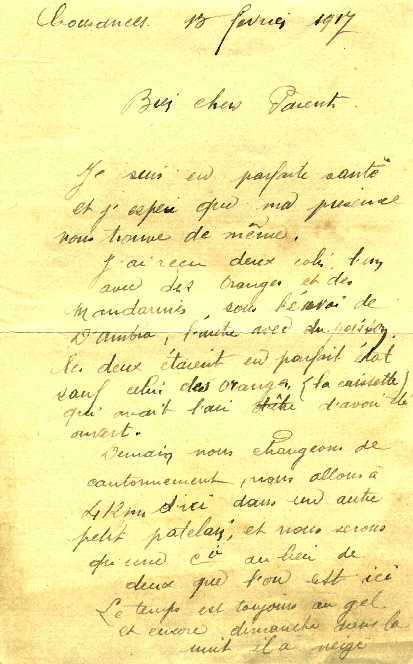 13 février 1917
Bien chers Parents
Je suis en parfaite santé
et j'espère que ma présence
vous trouve de même.
J'ai reçu deux colis l'un
avec des oranges et des
Mandarines sous l'envoi de
D'ambra, l'autre avec du
Les deux étaient en parfait état
sauf celui des oranges (la caissette)
qui avait l'air d'avoir été
ouvert.
Demain nous changeons de
cantonnement, nous allons à
4 Kms d'ici dans un autre
petit patelin, et nous serons
qu'une Cie au lieu de
deux que l'on est ici
Le temps est toujours au gel
et encore dimanche dans la
nuit il a neigé